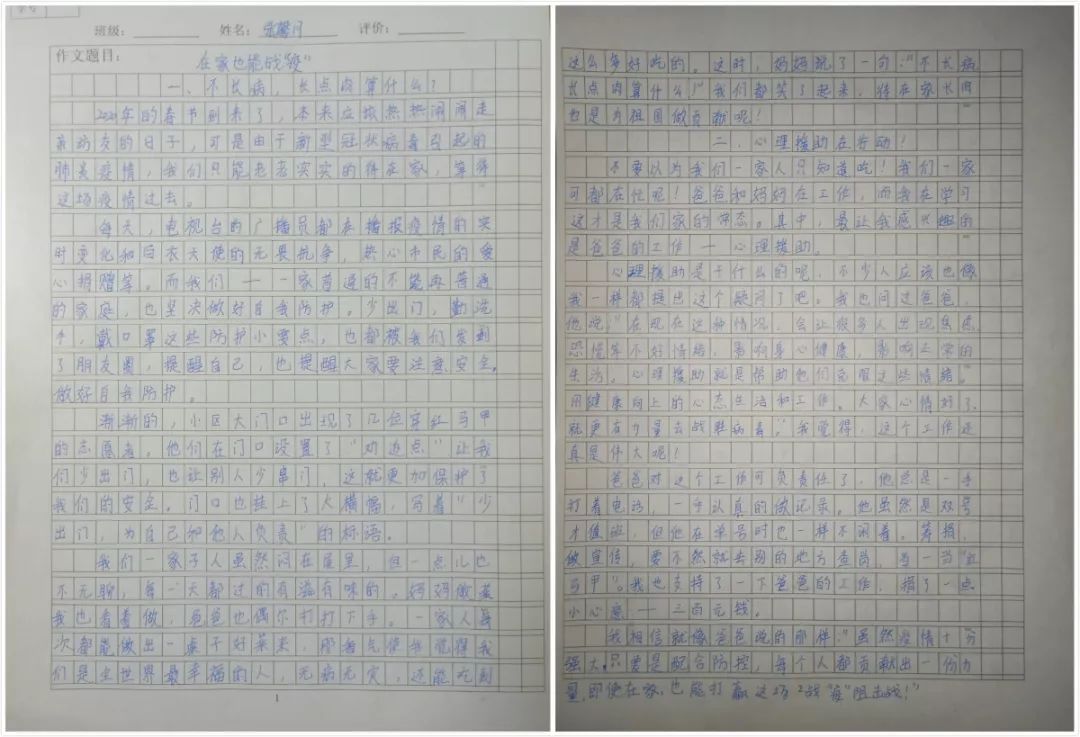 班级： 姓名： 评价：
作文题目：
在家也能战"疫"
一、不长病，长点肉算什么？
2020年的春节到来了，本来应该热热闹闹走
亲访友的日子，可是由于新型冠状病毒引起的
肺炎疫情，我们只能老老实实的待在家，等待
这场疫情过去。
每天，电视台的广播员都在播报疫情的实
时变化和白衣天使的无畏抗争，热心市民的爱
心捐赠等。而我们——一家普通的不能再普通
的家庭，也坚决做好自我防护。少出门，勤洗
手，戴口罩这些防护小要点，也都被我们发到
了朋友圈，提醒自己，也提醒大家要注意安全，
做好自我防护。
渐渐的，小区大门口出现了几位穿红马甲
的志愿者。他们在门口设置了"劝返点"让我
们少出门，也让别人少串门，这就更加保护了
我们的安全。门口也挂上了大横幅，写着"少
出门，为自己和他人负责"的标语。
我们一家子人虽然闷在屋里，但一点儿也
不无聊，每一天都过的有滋有味的。妈妈做菜
我也看着做，爸爸也偶尔打打下手。一家人每
次都能做出一桌子好菜来，那香气使我觉得我
们是全世界最幸福的人，无病无灾，还能吃到
1
这么多好吃的。这时，妈妈说了一句："不长病
长点肉算什么！"我们都笑了起来，待在家长肉
也是为祖国做贡献呢！
二、心理援助在行动！
不要以为我们一家人只知道吃！我们一家
可都在忙呢！爸爸和妈妈在工作，而我在学习
这才是我们家的常态。其中，最让我感兴趣的
是爸爸的工作——心理援助。
心理援助是干什么的呢，不少人应该也像
我一样都提出这个疑问了吧。我也问过爸爸，
他说："在现在这种情况，会让很多人出现焦虑
恐慌等不好情绪，影响身心健康，影响正常的
生活。心理援助就是帮助他们克服这些情绪。
用健康向上的心态生活和工作。大家心情好了，
就更有力量去战胜病毒。"我觉得，这个工作还
真是伟大呢！
爸爸对这个工作可负责任了，他总是一手
打着电话，一手认真的做记录。他虽然是双号
才值班，但他在单号时也一样不闲着。筹捐，
做宣传，要不然就去别的地方查岗，当一当"红
马甲"。我也支持了一下爸爸的工作，捐了一点
小心意——三百元钱。
我相信就像爸爸说的那样："虽然疫情十分
强大，只要是配合防控，每个人都贡献出一份力
量，即便在家，也能打赢这场"战"疫"阻击战！"